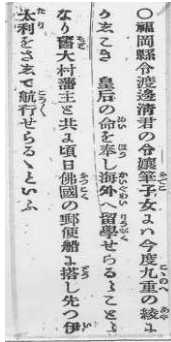 〇福岡縣令渡邊清君の令孃筆子女ハ今度九重の綾に
かしこき 皇后の命を奉し海外へ留學せらるゝことゝ
なり舊大村藩主と共に頃日佛國の郵便船に搭し先つ伊
太利をさして航行せらるゝといふ